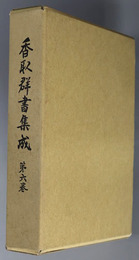 香取群書集成
第六巻